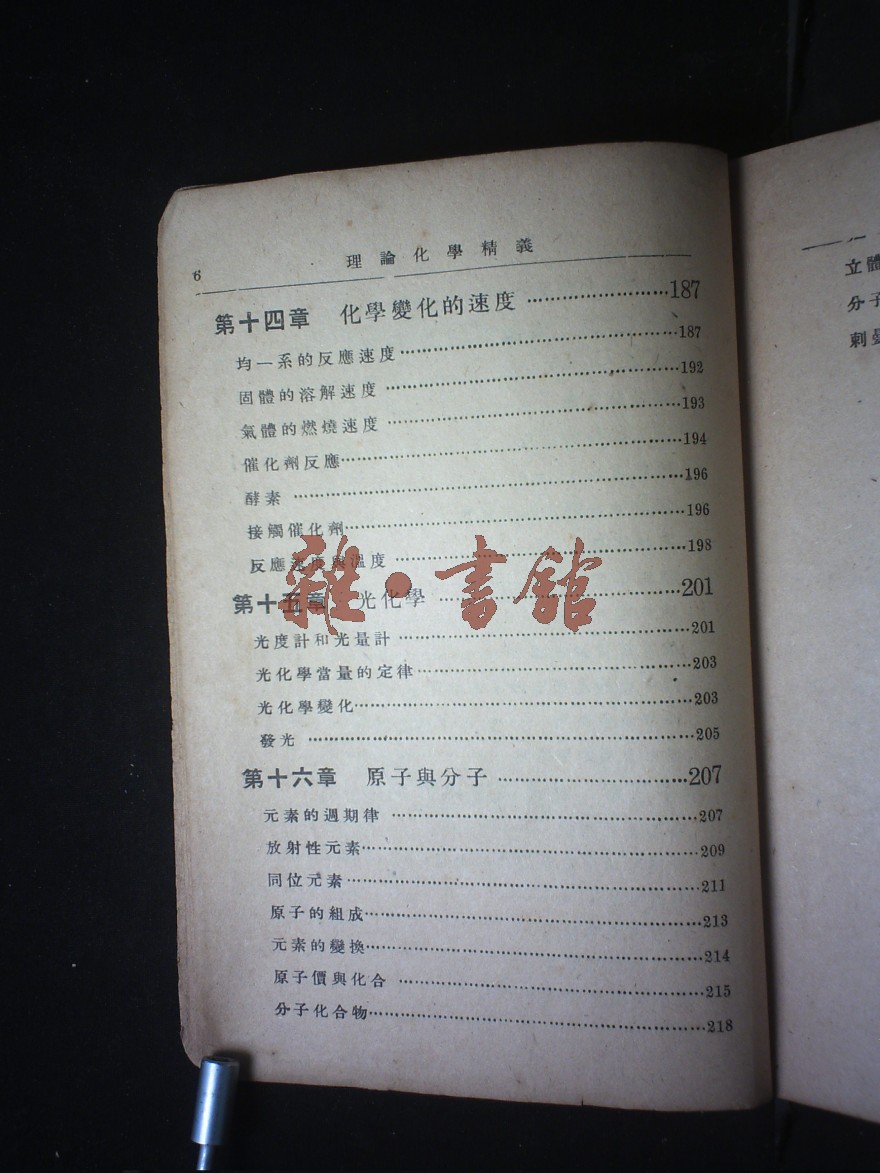 6 理論化學精義
第十四章 化學變化的速度……………………187
均一系的反應速度……………………187
固體的溶解速度……………………192
氣體的燃燒速度……………………193
催化劑反應……………………194
酵素……………………196
接觸催化劑……………………196
反應速度與溫度……………………198
第十五章 光化學……………………201
光度計和光量計……………………201
光化學當量的定律……………………203
光化學變化……………………203
發光……………………205
第十六章 原子與分子……………………207
元素的週期律……………………207
放射性元素……………………209
同位元素……………………211
原子的組成……………………213
元素的變換……………………214
原子價與化合……………………215
分子化合物……………………218
雜·書館
立體
分子